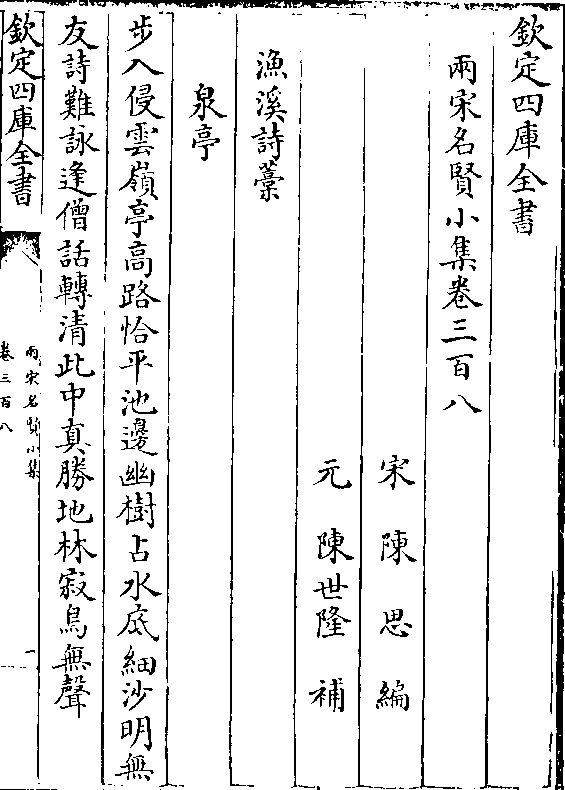 欽定四庫全書
兩宋名賢小集卷三百八
宋陳思編
元陳世隆補
漁溪詩藁
泉亭
步入侵雲嶺亭高路恰平池邊幽樹占水底細沙明無
友詩難詠逢僧話轉清此中真勝地林寂鳥無聲
欽定四庫全書
兩宋名賢小集
卷三百八
一